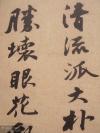 清流派大朴
勝壞眼花